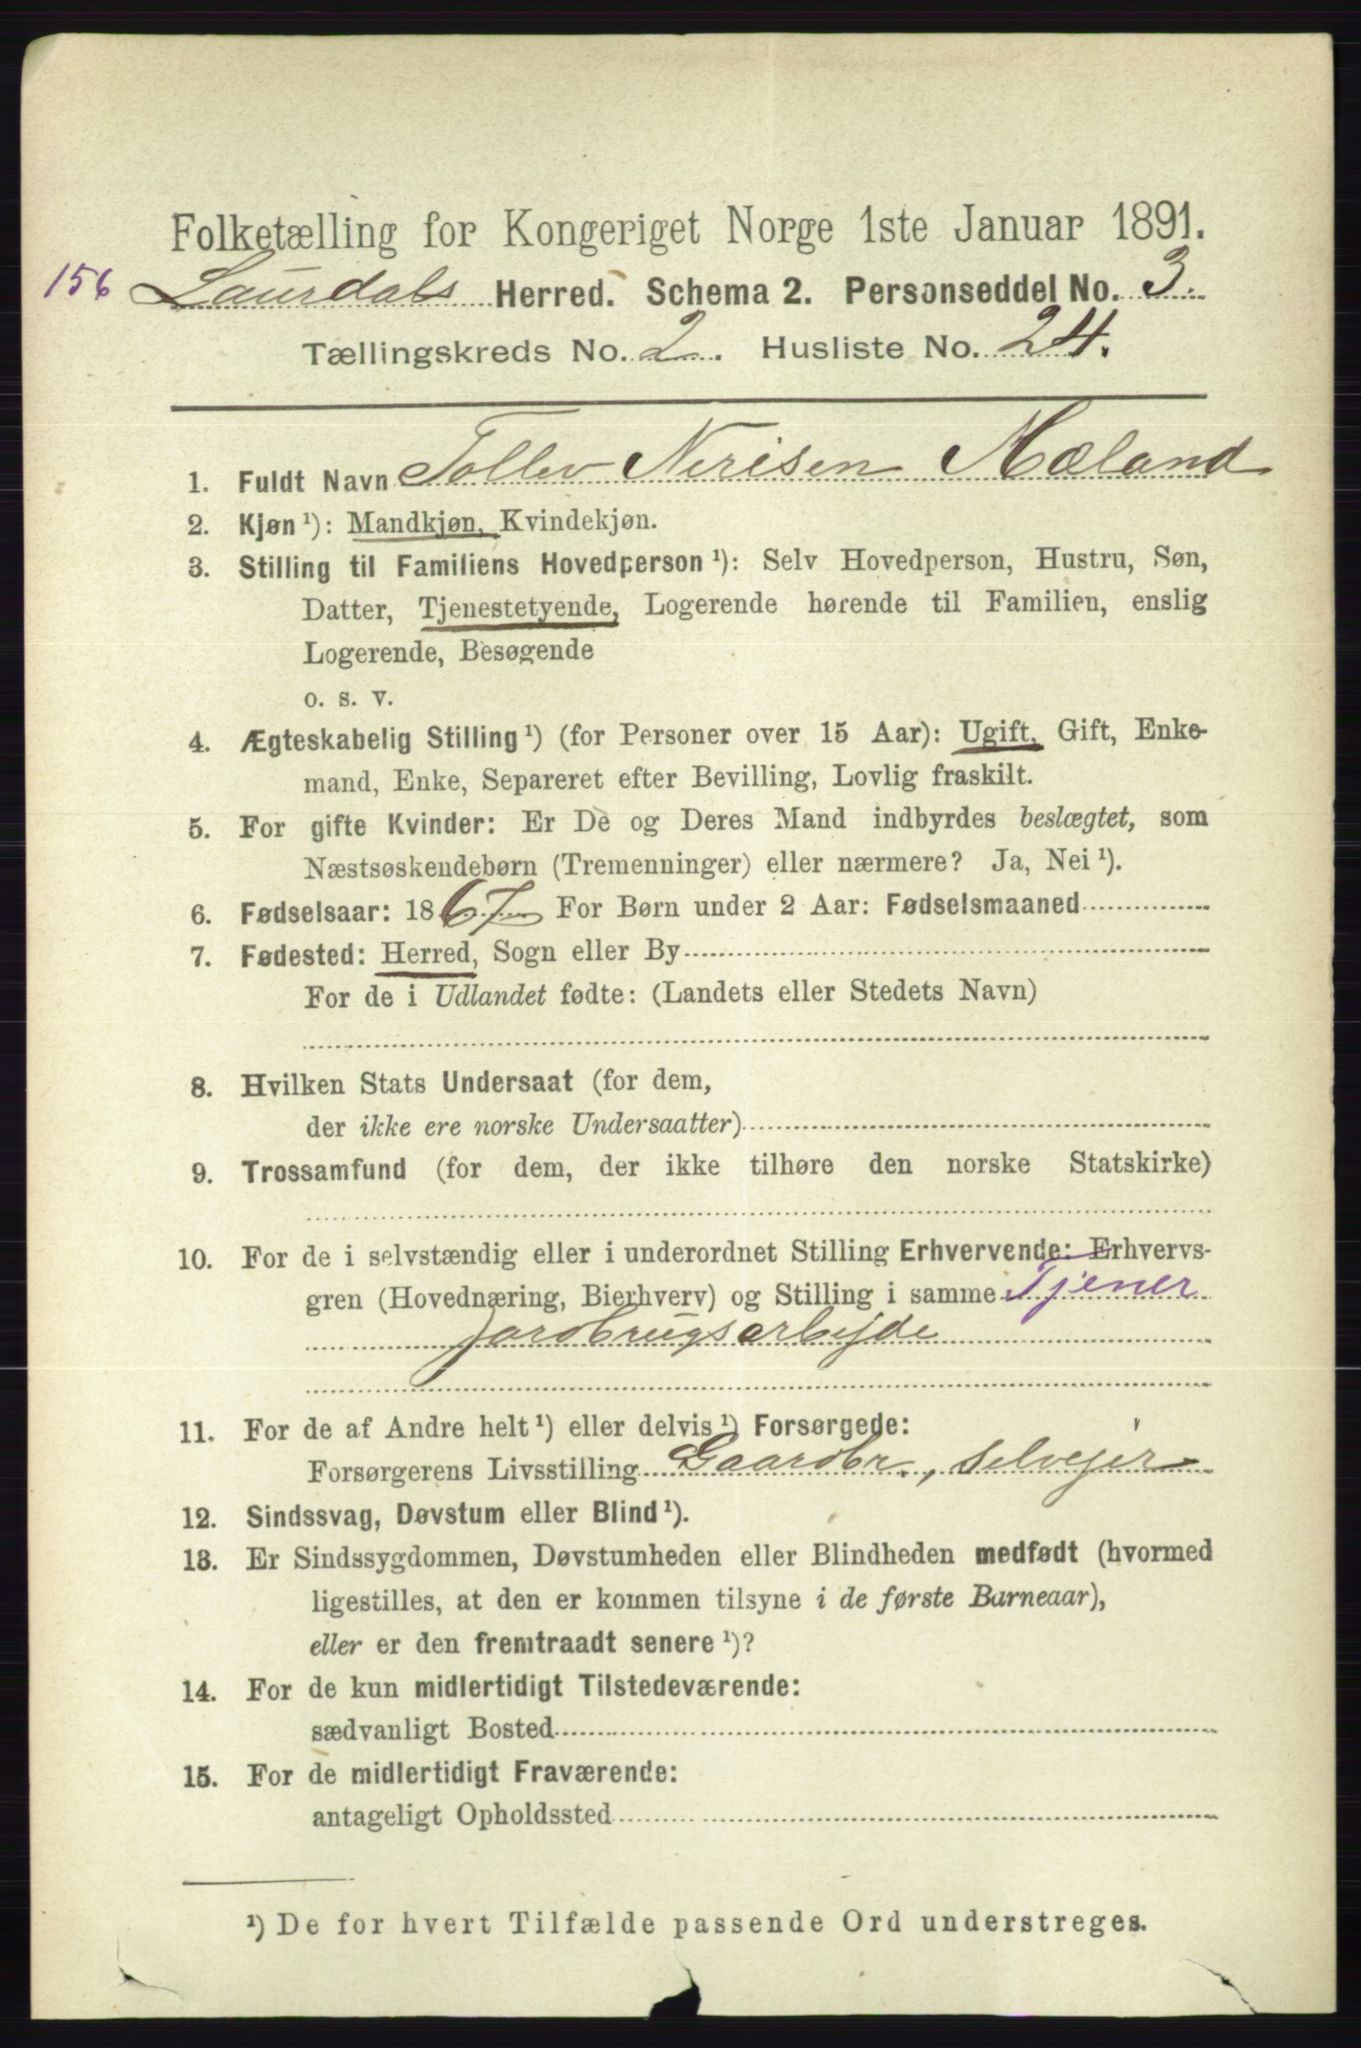 Folketælling for Kongeriget Norge 1ste Januar 1891.
156 Laurdals Herred. Schema 2. Personseddel No. 3.
Tællingskreds No. 2. Husliste No. 24.
1. Fuldt Navn Tollev Nerisen Mæland
2. Kjøn ¹): Mandkjøn, Kvindekjøn.
3. Stilling til Familiens Hovedperson ¹): Selv Hovedperson, Hustru, Søn,
Datter, Tjenestetyende, Logerende hørende til Familien, enslig
Logerende, Besøgende
o. s. v.
4. Ægteskabelig Stilling ¹) (for Personer over 15 Aar): Ugift, Gift, Enke-
mand, Enke, Separeret efter Bevilling, Lovlig fraskilt.
5. For gifte Kvinder: Er De og Deres Mand indbyrdes beslægtet, som
Næstsøskendebørn (Tremenninger) eller nærmere? Ja, Nei ¹).
6. Fødselsaar: 1867 For Børn under 2 Aar: Fødselsmaaned
7. Fødested: Herred, Sogn eller By
For de i Udlandet fødte: (Landets eller Stedets Navn)
8. Hvilken Stats Undersaat (for dem,
der ikke ere norske Undersaatter)
9. Trossamfund (for dem, der ikke tilhøre den norske Statskirke)
10. For de i selvstændig eller i underordnet Stilling Erhvervende: Erhvervs-
gren (Hovednæring, Bierhverv) og Stilling i samme Tjener
Jordbrugsarbejde
11. For de af Andre helt ¹) eller delvis ¹) Forsørgede:
Forsørgerens Livsstilling Gaardbr., selvejer
12. Sindssvag, Døvstum eller Blind ¹).
13. Er Sindssygdommen, Døvstumheden eller Blindheden medfødt (hvormed
ligestilles, at den er kommen tilsyne i de første Barneaar),
eller er den fremtraadt senere ¹)?
14. For de kun midlertidigt Tilstedeværende:
sædvanligt Bosted
15. For de midlertidigt Fraværende:
antageligt Opholdssted
¹) De for hvert Tilfælde passende Ord understreges.